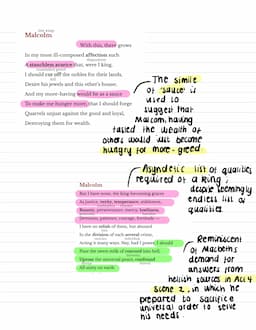 Malcolm
With this, there grows
In my most ill-composed affection such
A stanchless avarice that, were I king,
I should cut off the nobles for their lands,
Desire his jewels and this other's house,
And my more-having would be as a sauce
To make me hunger more, that I should forge
Quarrels unjust against the good and loyal,
Destroying them for wealth.
The simile
of 'sauce' is
used to
suggest that
Malcolm, having
tasted the wealth of
others would just become
hungry for more - greed.
Asyndetic list of qualities
required of a king,
despite seemingly
endless list of
qualities.
Malcolm
But I have none. The king-becoming graces,
As justice, verity, temperance, stableness,
Bounty, perseverance, mercy, lowliness,
Devotion, patience, courage, fortitude,
I have no relish of them, but abound
In the division of each several crime,
Acting it many ways. Nay, had I power, I should
Pour the sweet milk of concord into hell,
Uproar the universal peace, confound
All unity on earth.
Reminiscent
of Macbeth's
demand for
answers from
hellish sources in Act 4
Scene 2, in which he
prepared to sacrifice
universal order to serve
his needs.